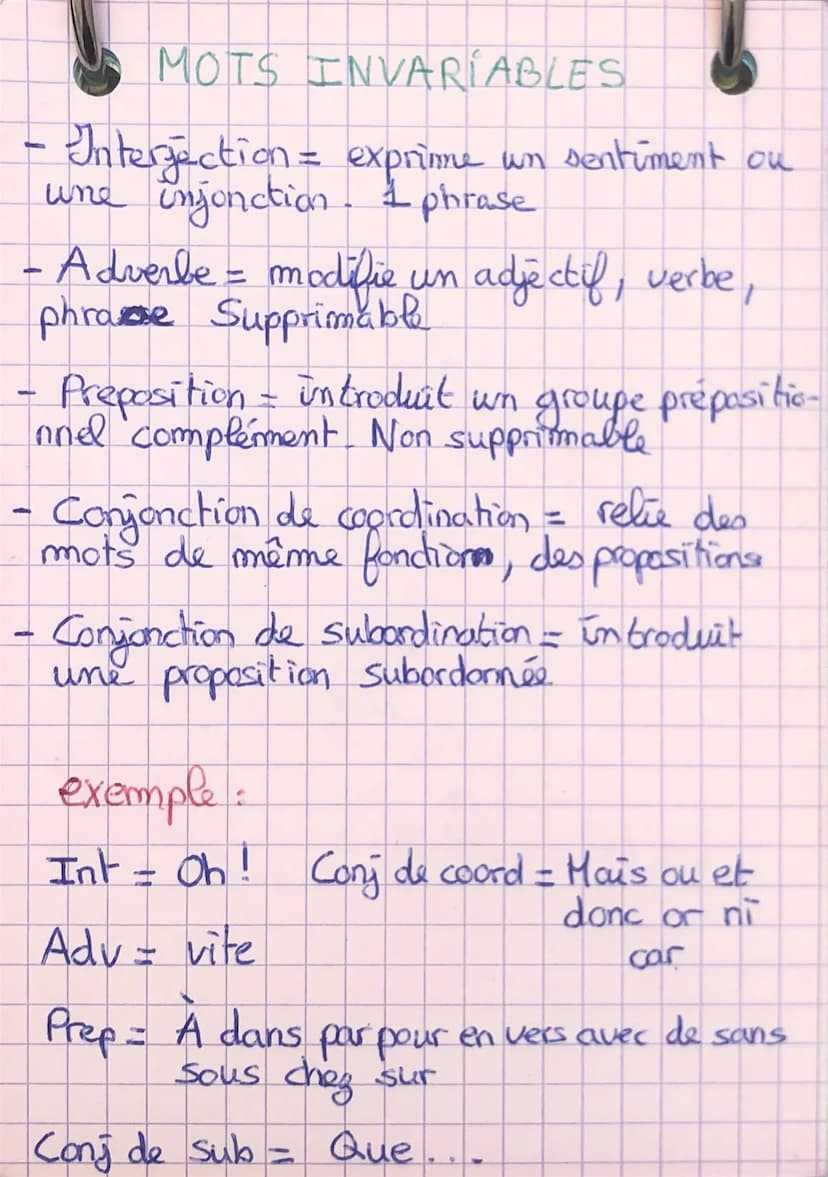 MOTS INVARIABLES
- Interjection = exprime un sentiment ou
une injonction. 1 phrase
- Adverbe = modifie un adjectif, verbe,
phrase Supprimable
- Preposition = introduit un groupe prépositio-
nnel complément. Non supprimable
- Conjonction de coordination = relie des
mots de même fonction, des propositions
- Conjonction de subordination = introduit
une proposition subordonnée
exemple :
Int = Oh! Conj de coord = Mais ou et
donc or ni
Adv = vite car
Prep = À dans par pour en vers avec de sans
sous chez sur
Conj de sub = Que...